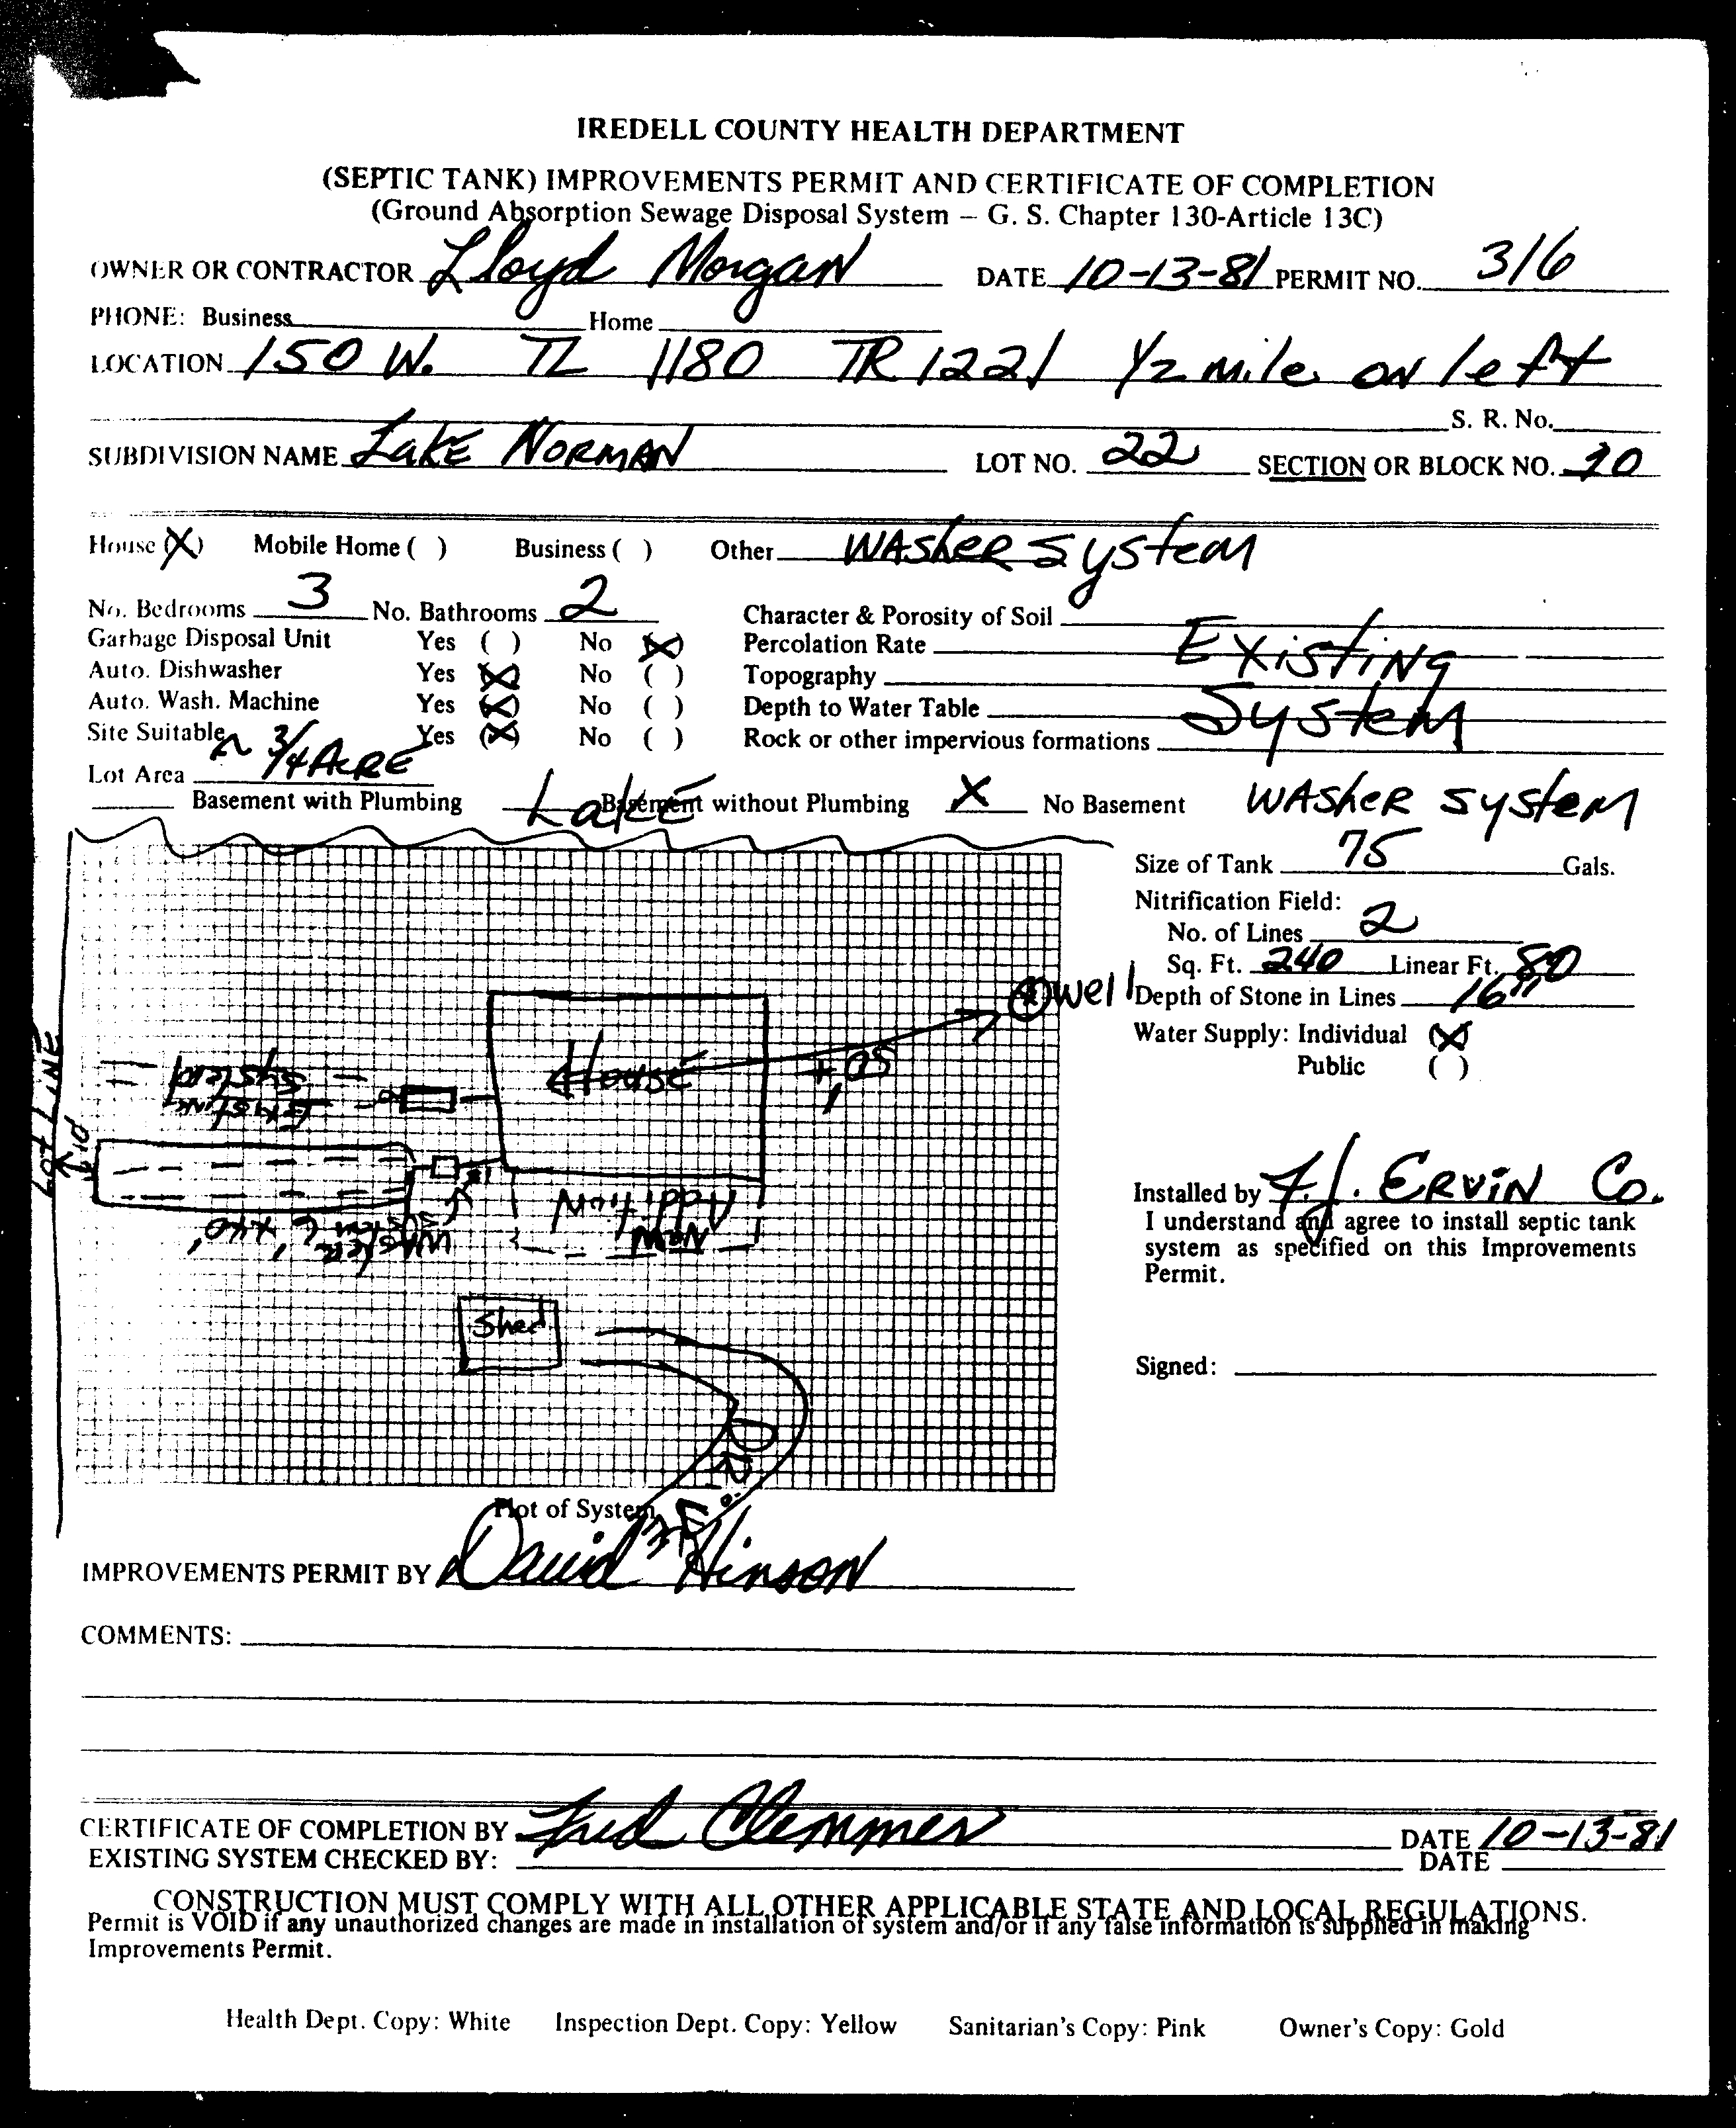 IREDELL COUNTY HEALTH DEPARTMENT
(SEPTIC TANK) IMPROVEMENTS PERMIT AND CERTIFICATE OF COMPLETION
(Ground Absorption Sewage Disposal System – G. S. Chapter 130-Article 13C)
OWNER OR CONTRACTOR Lloyd Morgan DATE 10-13-81 PERMIT NO. 316
PHONE: Business Home
LOCATION 150 W. TL 1180 TR 1221 1/2 mile on left
S. R. No.
SUBDIVISION NAME Lake Norman LOT NO. 22 SECTION OR BLOCK NO. 10
House (X) Mobile Home ( ) Business ( ) Other Washer System
No. Bedrooms 3 No. Bathrooms 2 Character & Porosity of Soil
Garbage Disposal Unit Yes ( ) No (X) Percolation Rate Existing
Auto. Dishwasher Yes (X) No ( ) Topography
Auto. Wash. Machine Yes (X) No ( ) Depth to Water Table System
Site Suitable Yes (X) No ( ) Rock or other impervious formations
Lot Area ~ 3/4 Acre
Basement with Plumbing Basement without Plumbing X No Basement Washer System
Lake
Size of Tank 75 Gals.
Nitrification Field:
No. of Lines 2
Sq. Ft. 240 Linear Ft. 80
Well
Depth of Stone in Lines 16"
Water Supply: Individual (X)
Public ( )
Lot Line
House
50'+
Existing
System
10'
New
Addition
Washer System 6' x 40'
Shed
Installed by F.J. Ervin Co.
I understand and agree to install septic tank
system as specified on this Improvements
Permit.
Signed:
Plot of System
IMPROVEMENTS PERMIT BY David Hinson
COMMENTS:
CERTIFICATE OF COMPLETION BY Fred Clemmer DATE 10-13-81
EXISTING SYSTEM CHECKED BY: DATE
CONSTRUCTION MUST COMPLY WITH ALL OTHER APPLICABLE STATE AND LOCAL REGULATIONS.
Permit is VOID if any unauthorized changes are made in installation of system and/or if any false information is supplied in making
Improvements Permit.
Health Dept. Copy: White Inspection Dept. Copy: Yellow Sanitarian's Copy: Pink Owner's Copy: Gold